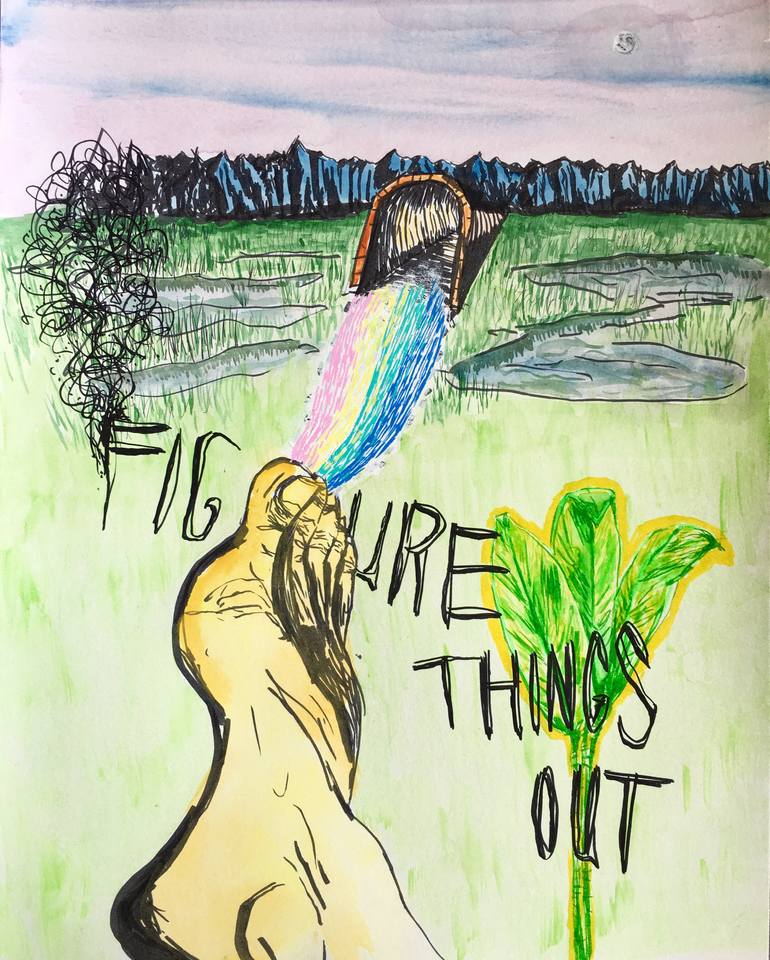 FIGURE
THINGS
OUT